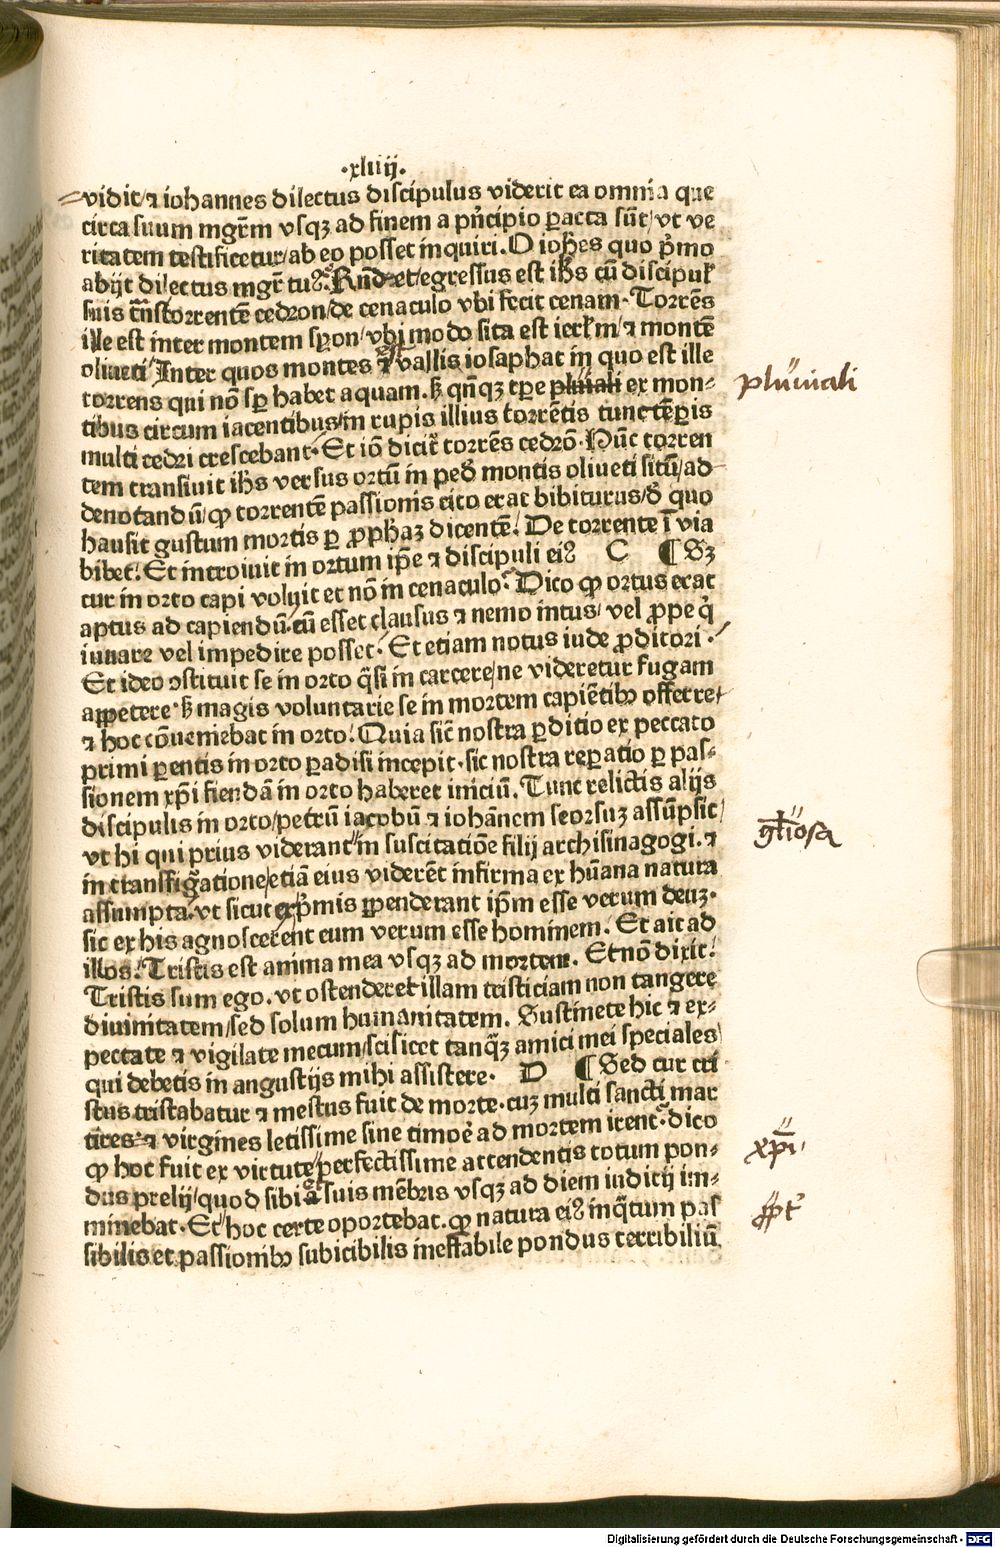 .xliiij.
vidit/⁊ iohannes dilectus discipulus viderit ea omnia que
circa suum mgr̄m vsqꝫ ad finem a pn̄cipio ꝑacta sūt/vt ve
ritatem testificetur/ab eo posset inquiri. O ioh̄es quo pͥmo
abijt dilectus mgr̄ tuꝰ. Rn̄det/egressus est ih̄s cū discipul̛
suis trās torrentē cedron/de cenaculo vbi fecit cenam. Torrēs
ille est inter montem syon/vbi modo sita est ierl̄m/⁊ montē
oliueti Inter quos montes ē vallis iosaphat in quo est ille
torrens qui nō sꝑ habet aquam. sꝫ qn̄qꝫ tꝑe pluuiali ex mon⸗
pluuiali
tibus circum iacentibus/in rupis illius torrētis tunc tēꝑis
multi cedri crescebant. Et iō dicit̄ torrēs cedrō. Hūc torren
tem transiuit ih̄s versus ortū in pedē montis oliueti sitū/ad
denotandū/ꝙ torrentē passionis cito erat bibiturus/de quo
hausit gustum mortis ꝑ ꝓphaꝫ dicentē. De torrente ī via
bibet. Et introiuit in ortum ip̄e ⁊ discipuli eiꝰ C ¶ Sꝫ
cur in orto capi voluit et nō in cenaculo. Dico ꝙ ortus erat
aptus ad capiendū. cū esset clausus ⁊ nemo intus/ vel ꝓpe qͥ
iuuare vel impedire posset. Et etiam notus iude ꝓditori.
Et ideo ꝯstituit se in orto qͣsi in carcere/ne videretur fugam
appetere. sꝫ magis voluntarie se in mortem capiētibꝰ offerre/
⁊ hoc cōueniebat in orto. Quia sic̄ nostra ꝑditio ex peccato
primi ꝑentis in orto ꝑadisi incepit. sic nostra reꝑatio ꝑ pas⸗
sionem xp̄i fiendā in orto haberet iniciū. Tunc relictis alijs
discipulis in orto/petrū iacobū ⁊ iohānem seorsuꝫ assūpsit/
vt hi qui prius viderant in suscitatiōe filij archisinagogi. ⁊
in transfigͣatione/etiā eius viderēt infirma ex hūana natura
assumpta. vt sicut ex pͥmis ꝑpenderant ip̄m esse verum deuꝫ.
sic ex his agnoscerent eum verum esse hominem. Et ait ad
illos. Tristis est anima mea vsqꝫ ad mortem. Et nō dixit.
Tristis sum ego. vt ostenderet illam tristiciam non tangere
diuinitatem/sed solum humanitatem. Sustinete hic ⁊ ex⸗
pectate ⁊ vigilate mecum/scilicet tanqͣꝫ amici mei speciales
qui debetis in angustijs mihi assistere. D ¶ Sed cur cri
stus tristabatur ⁊ mestus fuit de morte. cuꝫ multi sancti mar
tires ⁊ virgines letissime sine timoē ad mortem irent. dico
ꝙ hoc fuit ex virtute perfectissime attendentis totum pon⸗
xp̄i
dus prelij/quod sibi ⁊ suis mēbris vsqꝫ ad diem iudicij im⸗
minebat. Et hoc certe oportebat. ꝙ natura eiꝰ inqͣtum pas
sibilis et passionibꝰ subicibilis ineffabile pondus terribiliū
Digitalisierung gefördert durch die Deutsche Forschungsgemeinschaft - DFG